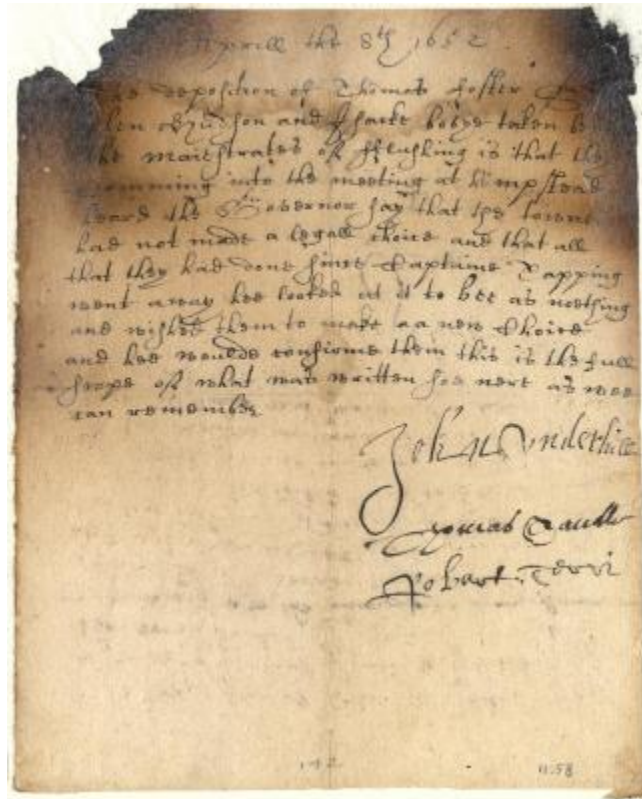 Aprill the 8th 1652
The deposition of Thomas foster
and Isacke taken
the maiestrates of fflushing is that
comming into the meeting at hempstead
heard the Governor say that the towne
had not made a legall choice and that all
that they had done since Captaine Topping
went away hee looked at it to bee as noething
and wished them to make aa new Choice
and hee woulde confirme them this is the full
scope of what was written soe nere as wee
can remember
John Underhill
Thomas Saull
Robart Terri
142
11:58